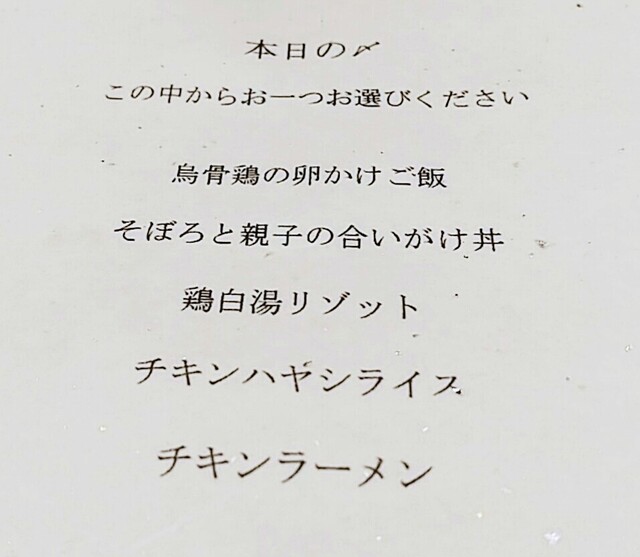 本日の〆
この中からお一つお選びください
烏骨鶏の卵かけご飯
そぼろと親子の合いがけ丼
鶏白湯リゾット
チキンハヤシライス
チキンラーメン